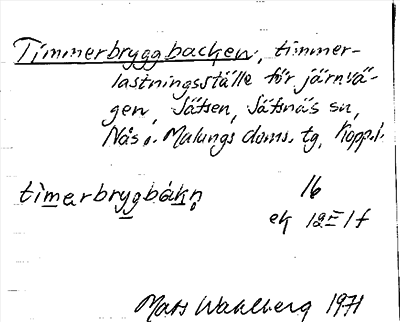 Timmerbryggbacken, timmer-
lastningsställe för järnvä-
gen, Sätsen, Sätsnäs sn,
Nås o. Malungs doms. tg, Kopp.l.
timerbrygbákn 16
ek 12 F 1 f
Mats Wahlberg 1971